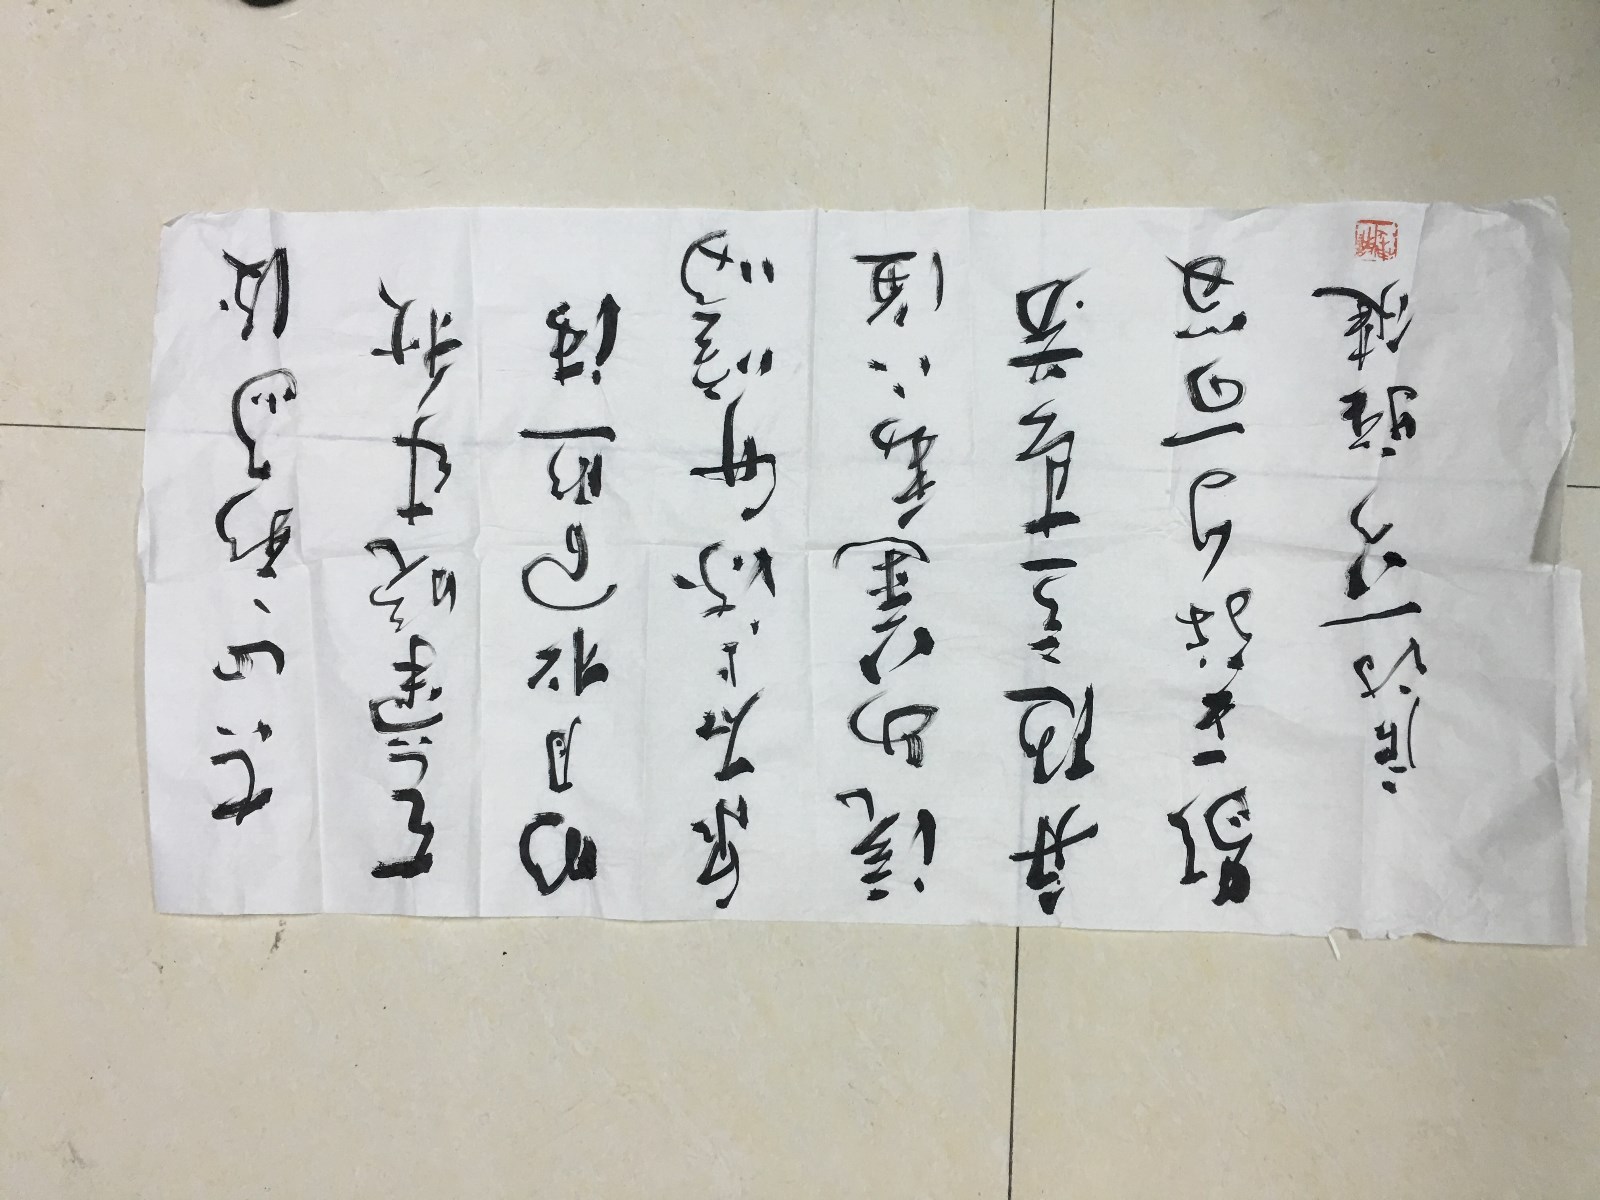 空山新雨後
天氣晚来秋
明月松間照清
泉石上流竹喧歸
浣女蓮動下漁
舟隨意春芳
歇王孫自可留
唐诗一首 雅健